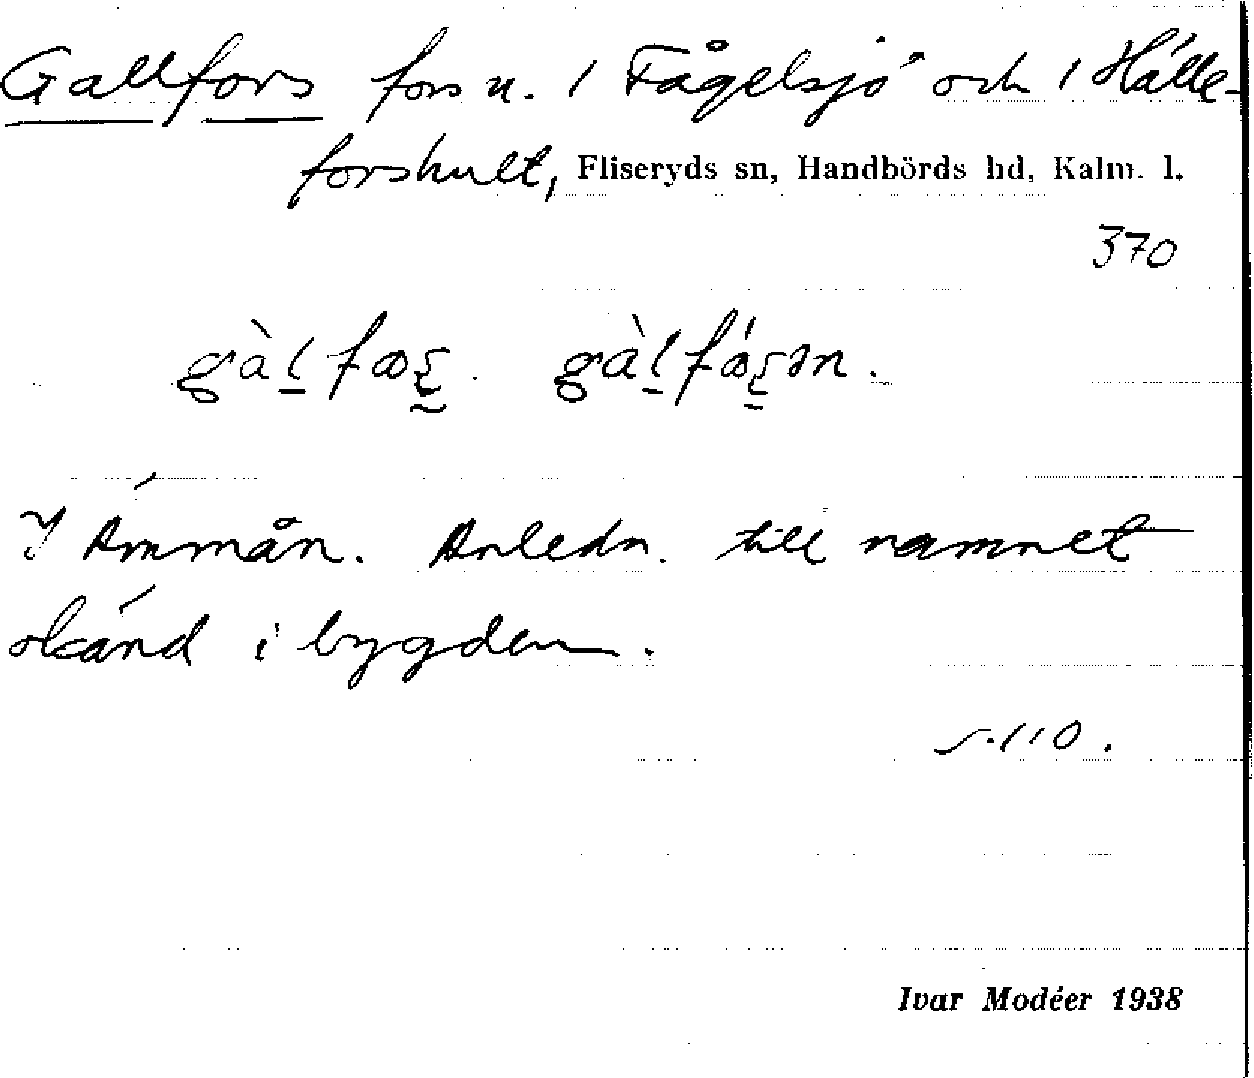 Gallfors fors n. / Fågelsjö och / Hälle-
forshult, Fliseryds sn, Handbörds hd, Kalm. l.
370
I Ämmån. Anledn. till namnet
okänd i bygden.
s. 110.
Ivar Modéer 1938